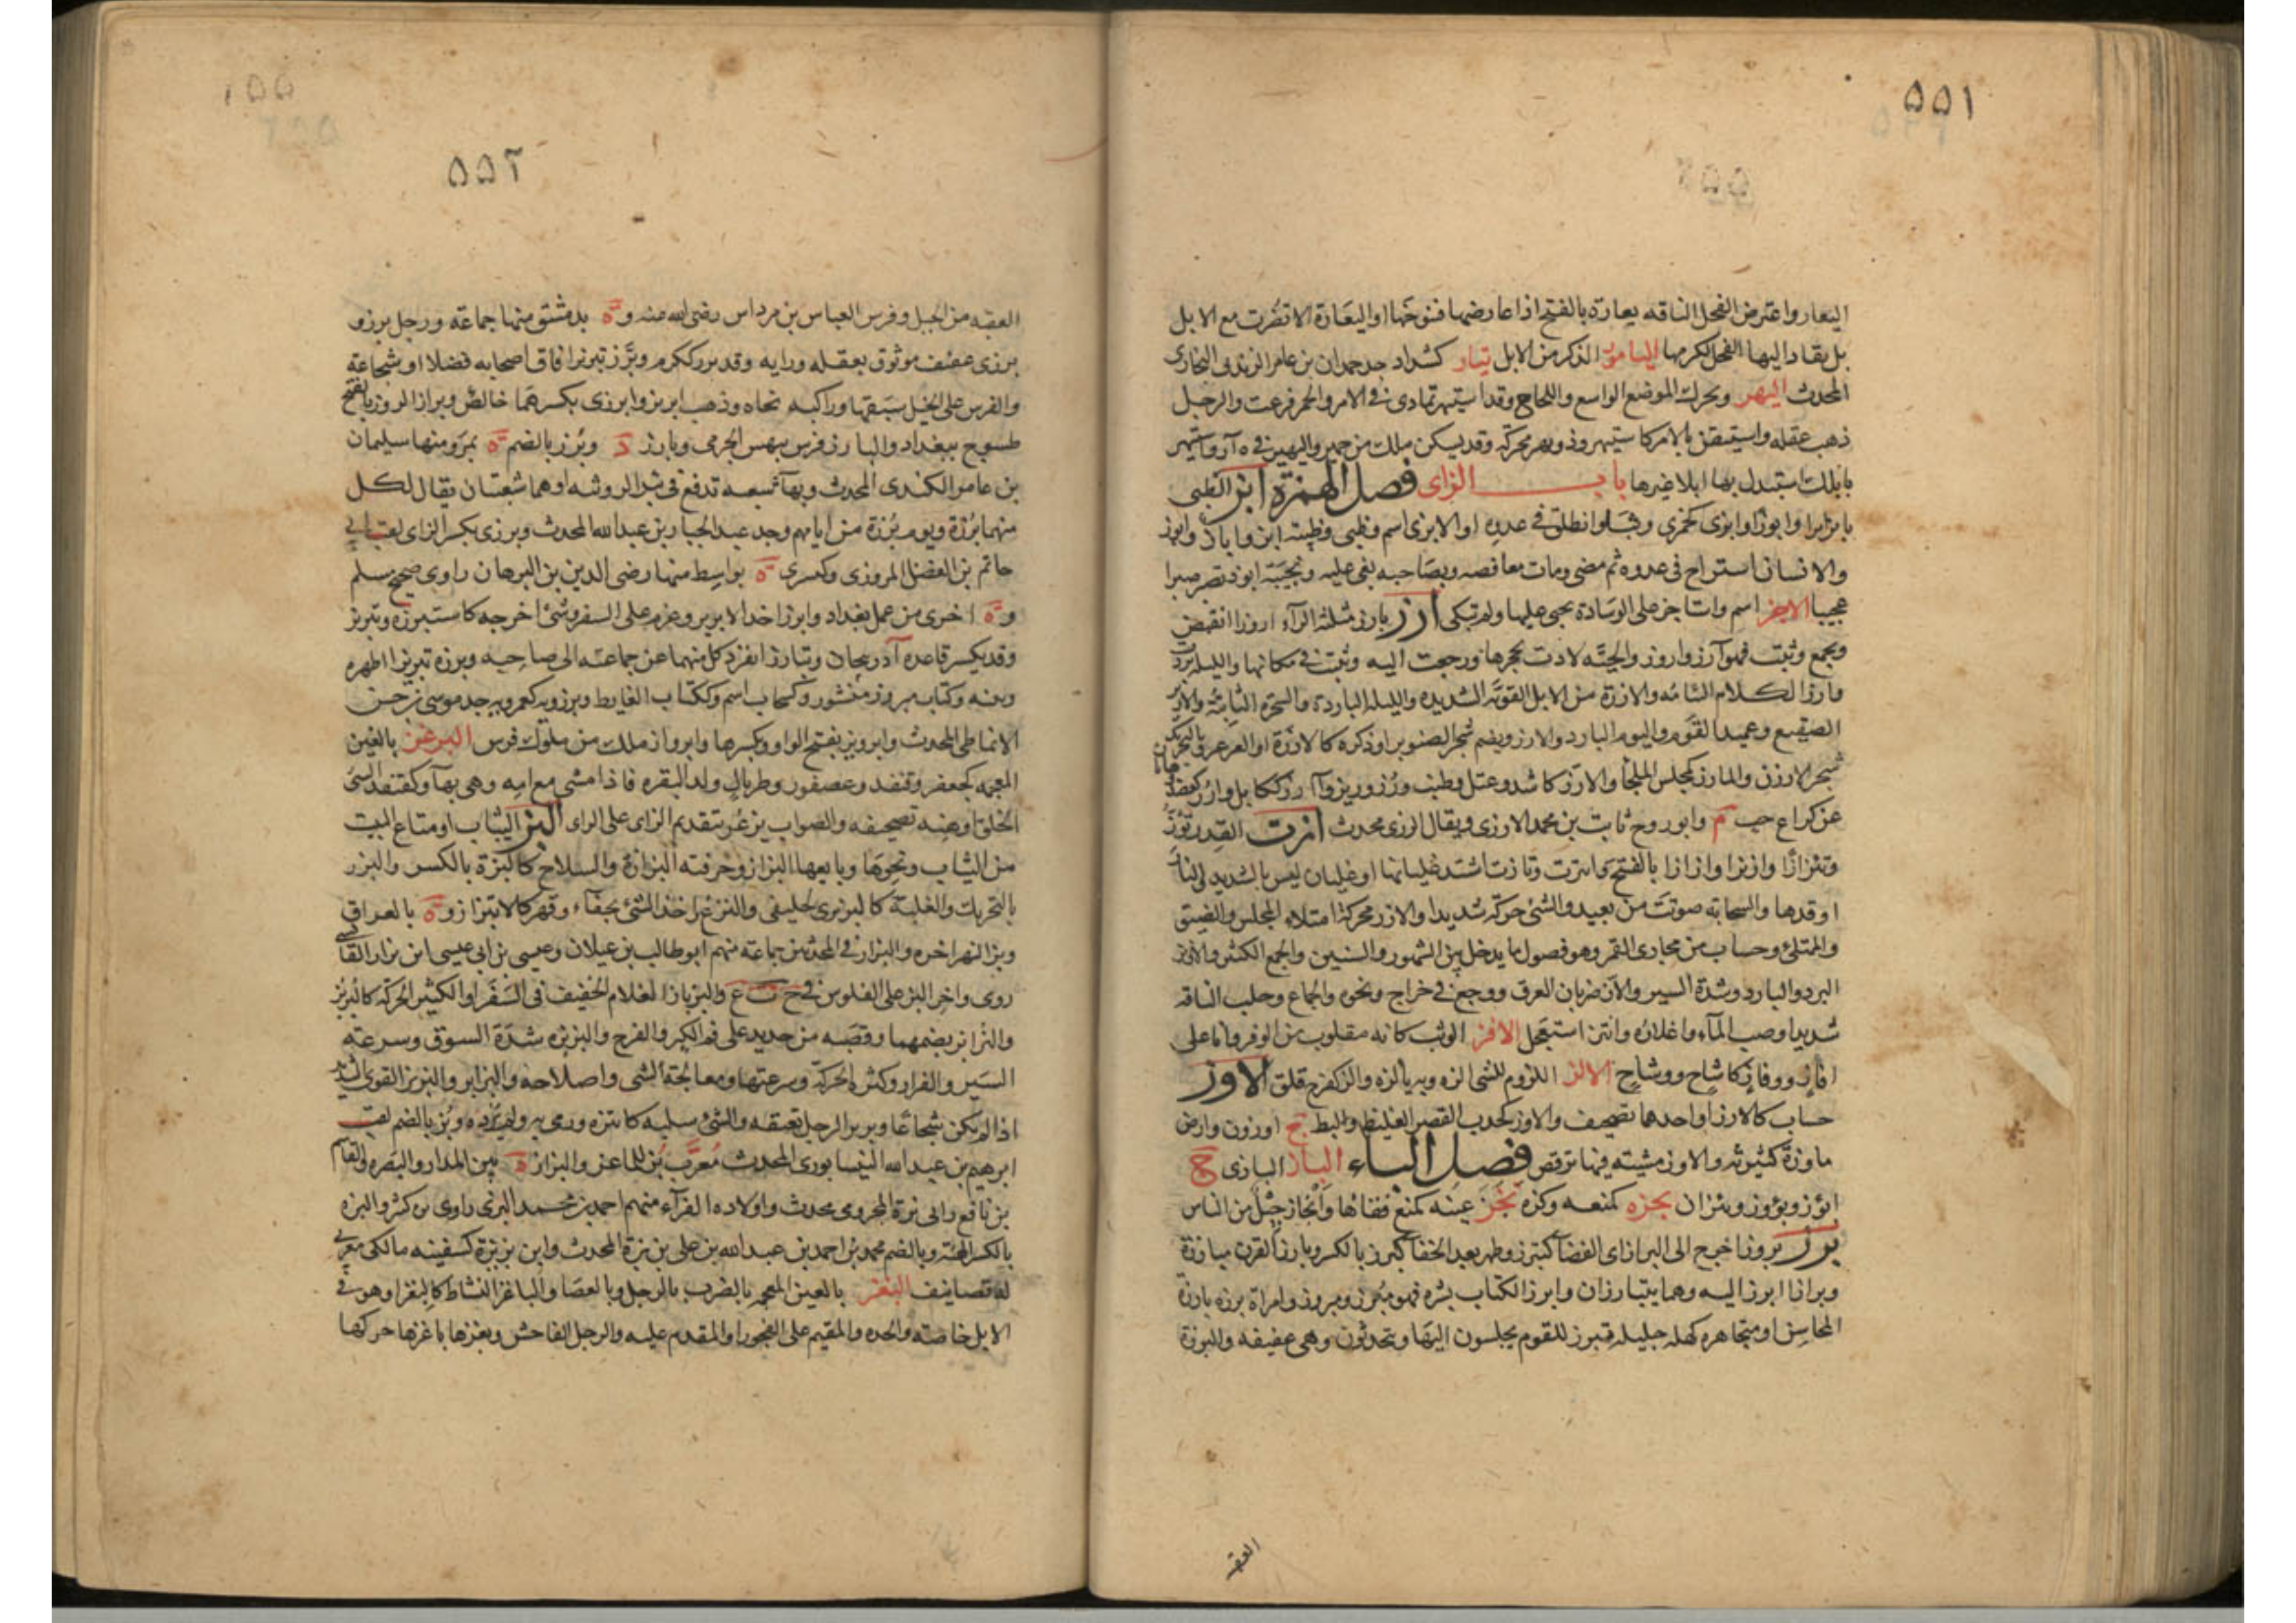 ٥٥١
اليعار واعترض الفحل الناقه يعارة بالفتح اذا عارضها فتنوخها او اليعارة الا تضرب مع الابل
بل يقاد اليها الفحل لكرمها اليامور الذكر من الابل تيار كشداد جد حمدان بن عامر الزندى البخارى
المحدث اليهر ويحرك الموضع الواسع واللجاج وقد استيهر تمادى فى الامر والحمر فزعت والرجل
ذهب عقله واستيقن بالامر كاستيهر وذو يهر محركة وقد يسكن ملك من حمير
بابلك استبدل بها ابلا غيرها باب الزاى فصل الهمزة ابز الظبى
يابز ابزا وابوزا وابزى كجمزى وثب او انطلق فى عدوه او الابزى اسم وظبى وظبية ابز واباز وابوز
والانسان استراح فى عدوه ثم مضى ومات معافصه وبصاحبه بغى عليه ونجيبة ابوز تصبر صبرا
عجيبا الاجز اسم واستاجز على الوسادة تحنى عليها ولم يتكى ارز يارز مثلثة الرآء اروزا انقبض
وتجمع وثبت فهو آرز واروز والحية لاذت بجحرها ورجعت اليه وثبتت فى مكانها والليلة بردت
وارز الكلام التئامه والارزة من الابل القوية الشديده والليلة الباردة والشجرة الثابتة
الصقيع وعميد القوم واليوم البارد والارز ويضم شجر الصنوبر او ذكره كالارزة او العرعر وبالتحريك
شجر الارزن والمارز كمجلس الملجأ والارز كاشد وعتل وطنب ورز ورنز وآرز ككابل وارز كعضد
عن كراع حب م وابو روح ثابت بن محمد الارزى ويقال الرزى محدث ازت القدر تؤز
وتئز ازا وازيزا وازازا بالفتح وائتزت وتازت اشتد غليانها او غليان ليس بالشديد والنار
اوقدها والسحابة صوتت من بعيد والشئ حركه شديدا والازز محركة امتلاء المجلس والضيق
والممتلئ وحساب من مجارى القمر وهو فصول ما يدخل بين الشهور والسنين والجمع الكثير والازيز
البرد والبارد وشدة السير والاز ضربان العرق ووجع فى خراج ونحوه والجماع وحلب الناقة
شديدا وصب المآء واغلاؤه وائتز استعجل الافز الوثب كانه مقلوب من الوفز وانا على
افاز ووفاز كاشاح ووشاح الالز اللزوم للشئ الزه وبه يالزه والز كفرح قلق الاوز
حساب كالازز او احدهما تصحيف والاوز كخدب القصير الغليظ والبط ج اوزون وارض
ماوزة كثيرته والاوزى مشية فيها ترقص فصل الباء الباز البازى ج
ابؤز وبؤوز وبئزان بحزه كمنعه وكزه بخز عينه كمنع فقاها وابخاز جيل من الناس
برز بروزا خرج الى البراز اى الفضآ كتبرز وظهر بعد الخفآ كبرز بالكسر وبارز القرن مبارزة
وبرازا ابرز اليه وهما يتبارزان وابرز الكتاب نشره فهو مبرز ومبروز وامراة برزه بارزة
المحاسن او متجاهره كهله جليله تبرز للقوم يجلسون اليها ويتحدثون وهى عفيفه والبرزة
العقبه
٥٥٢
العقبه من الجبل وفرس العباس بن مرداس رضى الله عنه و ة بدمشق منها جماعة ورجل برز و
برزى عفيف موثوق بعقله ورايه وقد برز ككرم وبرز تبريزا فاق اصحابه فضلا او شجاعة
والفرس على الخيل سبقها وراكبه نجاه وذهب ابريز وابرزى بكسرهما خالص وبراز الروز بالفتح
طسوج ببغداد والبارز فرس بيهس الجرمى وبارز د وبرز بالضم ة بمرو منها سليمان
بن عامر الكندى المحدث وبهآء شعبه تدفع فى بئر الروثه او هما شعبتان يقال لكل
منهما برزة ويوم برزة من ايامهم وجد عبد الجبار بن عبد الله المحدث وبرزى بكسر الزاى لقب ابى
حاتم بن الفضل المروزى وكبسرى ة بواسط منها رضى الدين بن البرهان راوى صحيح مسلم
و ة اخرى من عمل بغداد وابرز اخذ الابريز وعزم على السفر وشئ اخرجه كاستبرزه وتبريز
وقد يكسر قاعدة آذربيجان وتبارزا انفرد كل منهما عن جماعته الى صاحبه وبرزه تبريزا اظهره
وبينه وكتاب مبروز منشور وكسحاب اسم وككتاب الغايط وبرزويه كعمرويه جد موسى بن حسن
الانماطى المحدث وابرويز بفتح الواو وبكسرها وابرواز ملك من ملوك فرس البرغز بالغين
المعجمه كجعفر وقنفذ وعصفور وطربال ولد البقره فاذا مشى مع امه وهى بهآ وكقنفذ السئ
الخلق او هذه تصحيفه والصواب بزغر بتقديم الزاى على الراى البز الثياب او متاع البيت
من الثياب ونحوها وبايعها البزاز وحرفته البزازة والسلاح كالبزة بالكسر والبزز
بالتحريك والغلبة كالبزبزى كخليفى والنزع واخذ الشئ بجفآء وقهر كالابتزاز و ة بالعراق
وبز النهر اخره والبزاز فى المحدثين جماعة منهم ابو طالب بن غيلان وعيسى بن ابى عيسى ابن بزاز القابسى
روى واخر البز على القلوص فى خ ت ع والبزباز الغلام الخفيف فى السفر او الكثير الحركة كالبزبز
والبزابز بضمهما وقصبه من حديد على فم الكير والفرج والبزبزه شدة السوق وسرعة
السير والفرار وكثرة الحركة وسرعتها ومعالجة الشئ واصلاحه والبزابز والبزبز القوى الشديد
اذا لم يكن شجاعا وبزبز الرجل تعتعه والشئ سلبه كابتزه ورمى به ولم يرده وبز بالضم لقب
ابرهيم بن عبد الله النيسابورى المحدث معرب بز للماعز والبزاز ة بين المدار والبصره والقاسم
بن نافع بن ابى بزة المخزومى محدث واولاده القرآء منهم احمد بن محمد البزى راوى بن كثير والبزه
بالكسر الهيئة وبالضم محمد بن احمد بن عبد الله بن على بن بزة المحدث وابن بزيزة كسفينه مالكى مغربى
له تصانيف البغز بالعين المعجمه بالضرب بالرجل وبالعصا والباغز النشاط كالبغز او هو فى
الابل خاصة والحده والمقيم على الفجور او المقدم عليه والرجل الفاحش وبغزها باغزها حركها